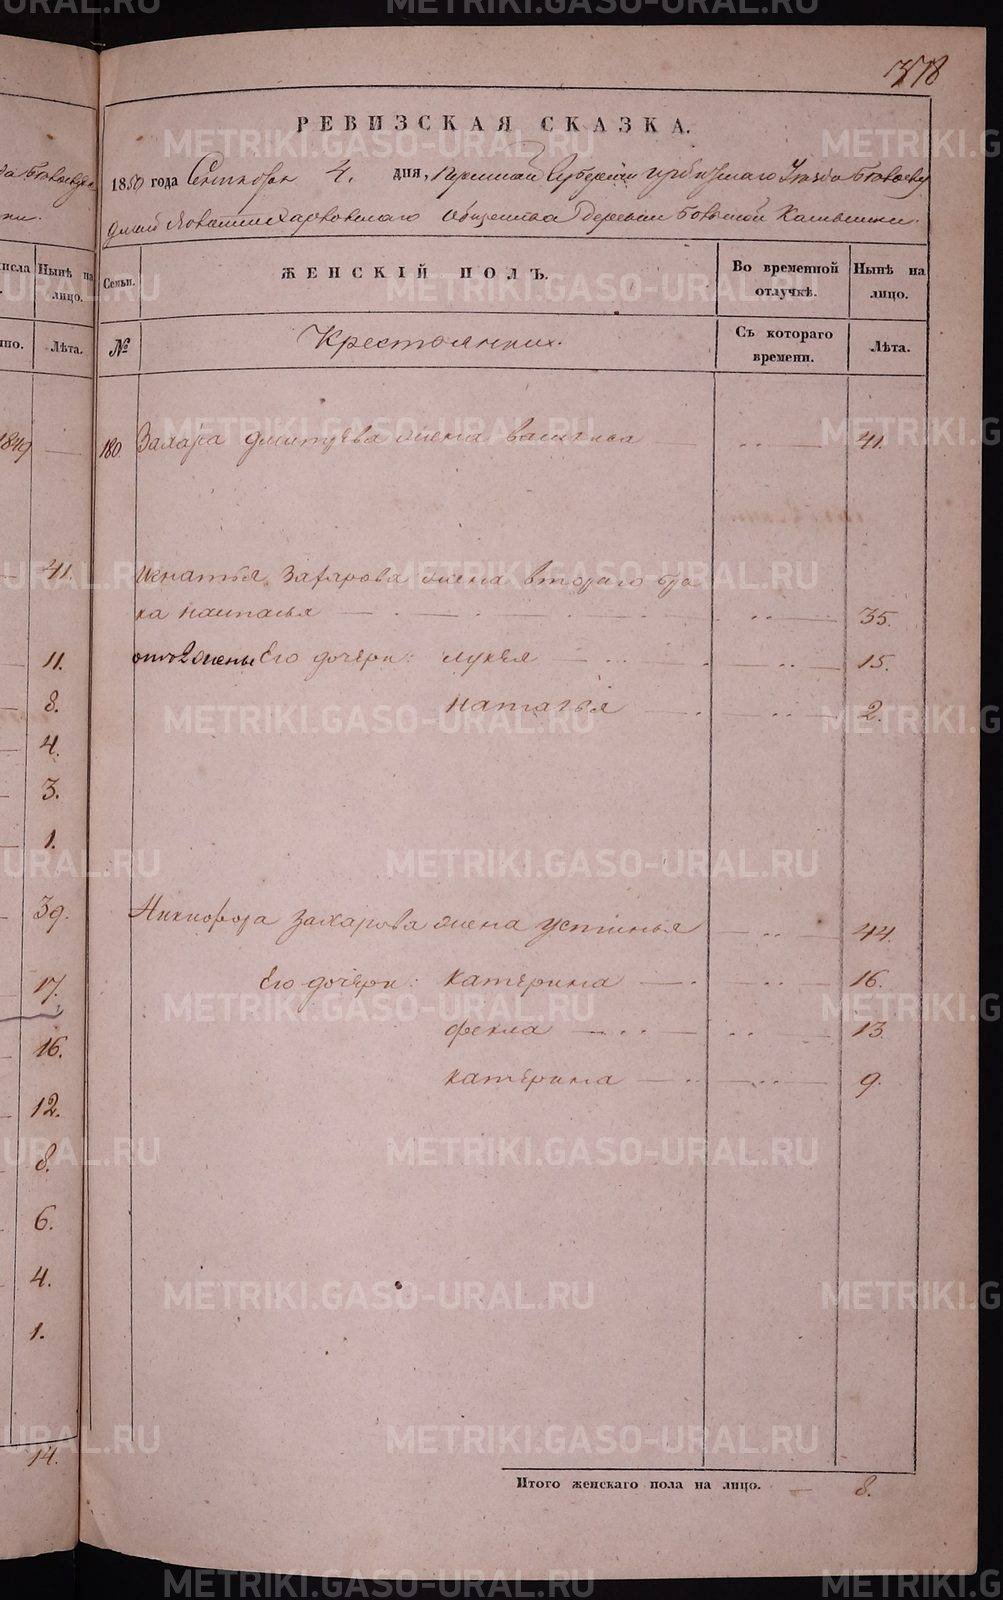 378
РЕВИЗСКАЯ СКАЗКА.
1850 года Сентября 4. дня, Пермской Губернии Ирбитскаго Уезда
Общества Деревни Большой Камышки.
Семьи. ЖЕНСКІЙ ПОЛЪ. Во временной отлучкѣ. Нынѣ на лицо.
№ Крестьянских. Съ котораго времени. Лѣта.
180. Захара Дмитрева жена василиса 41.
Игнатья Захарова жена втораго бра
ка настасья 35.
от 2 жены Его дочери: лукѣя 15.
наталья 2.
Никифора Захарова жена устинья 44.
Его дочери: катерина 16.
фекла 13.
катерина 9.
Итого женскаго пола на лицо. 8.
исла Нынѣ на лицо.
Лѣта.
1849
41.
11.
8.
4.
3.
1.
39.
17.
16.
12.
8.
6.
4.
1.
14.
METRIKI.GASO-URAL.RU